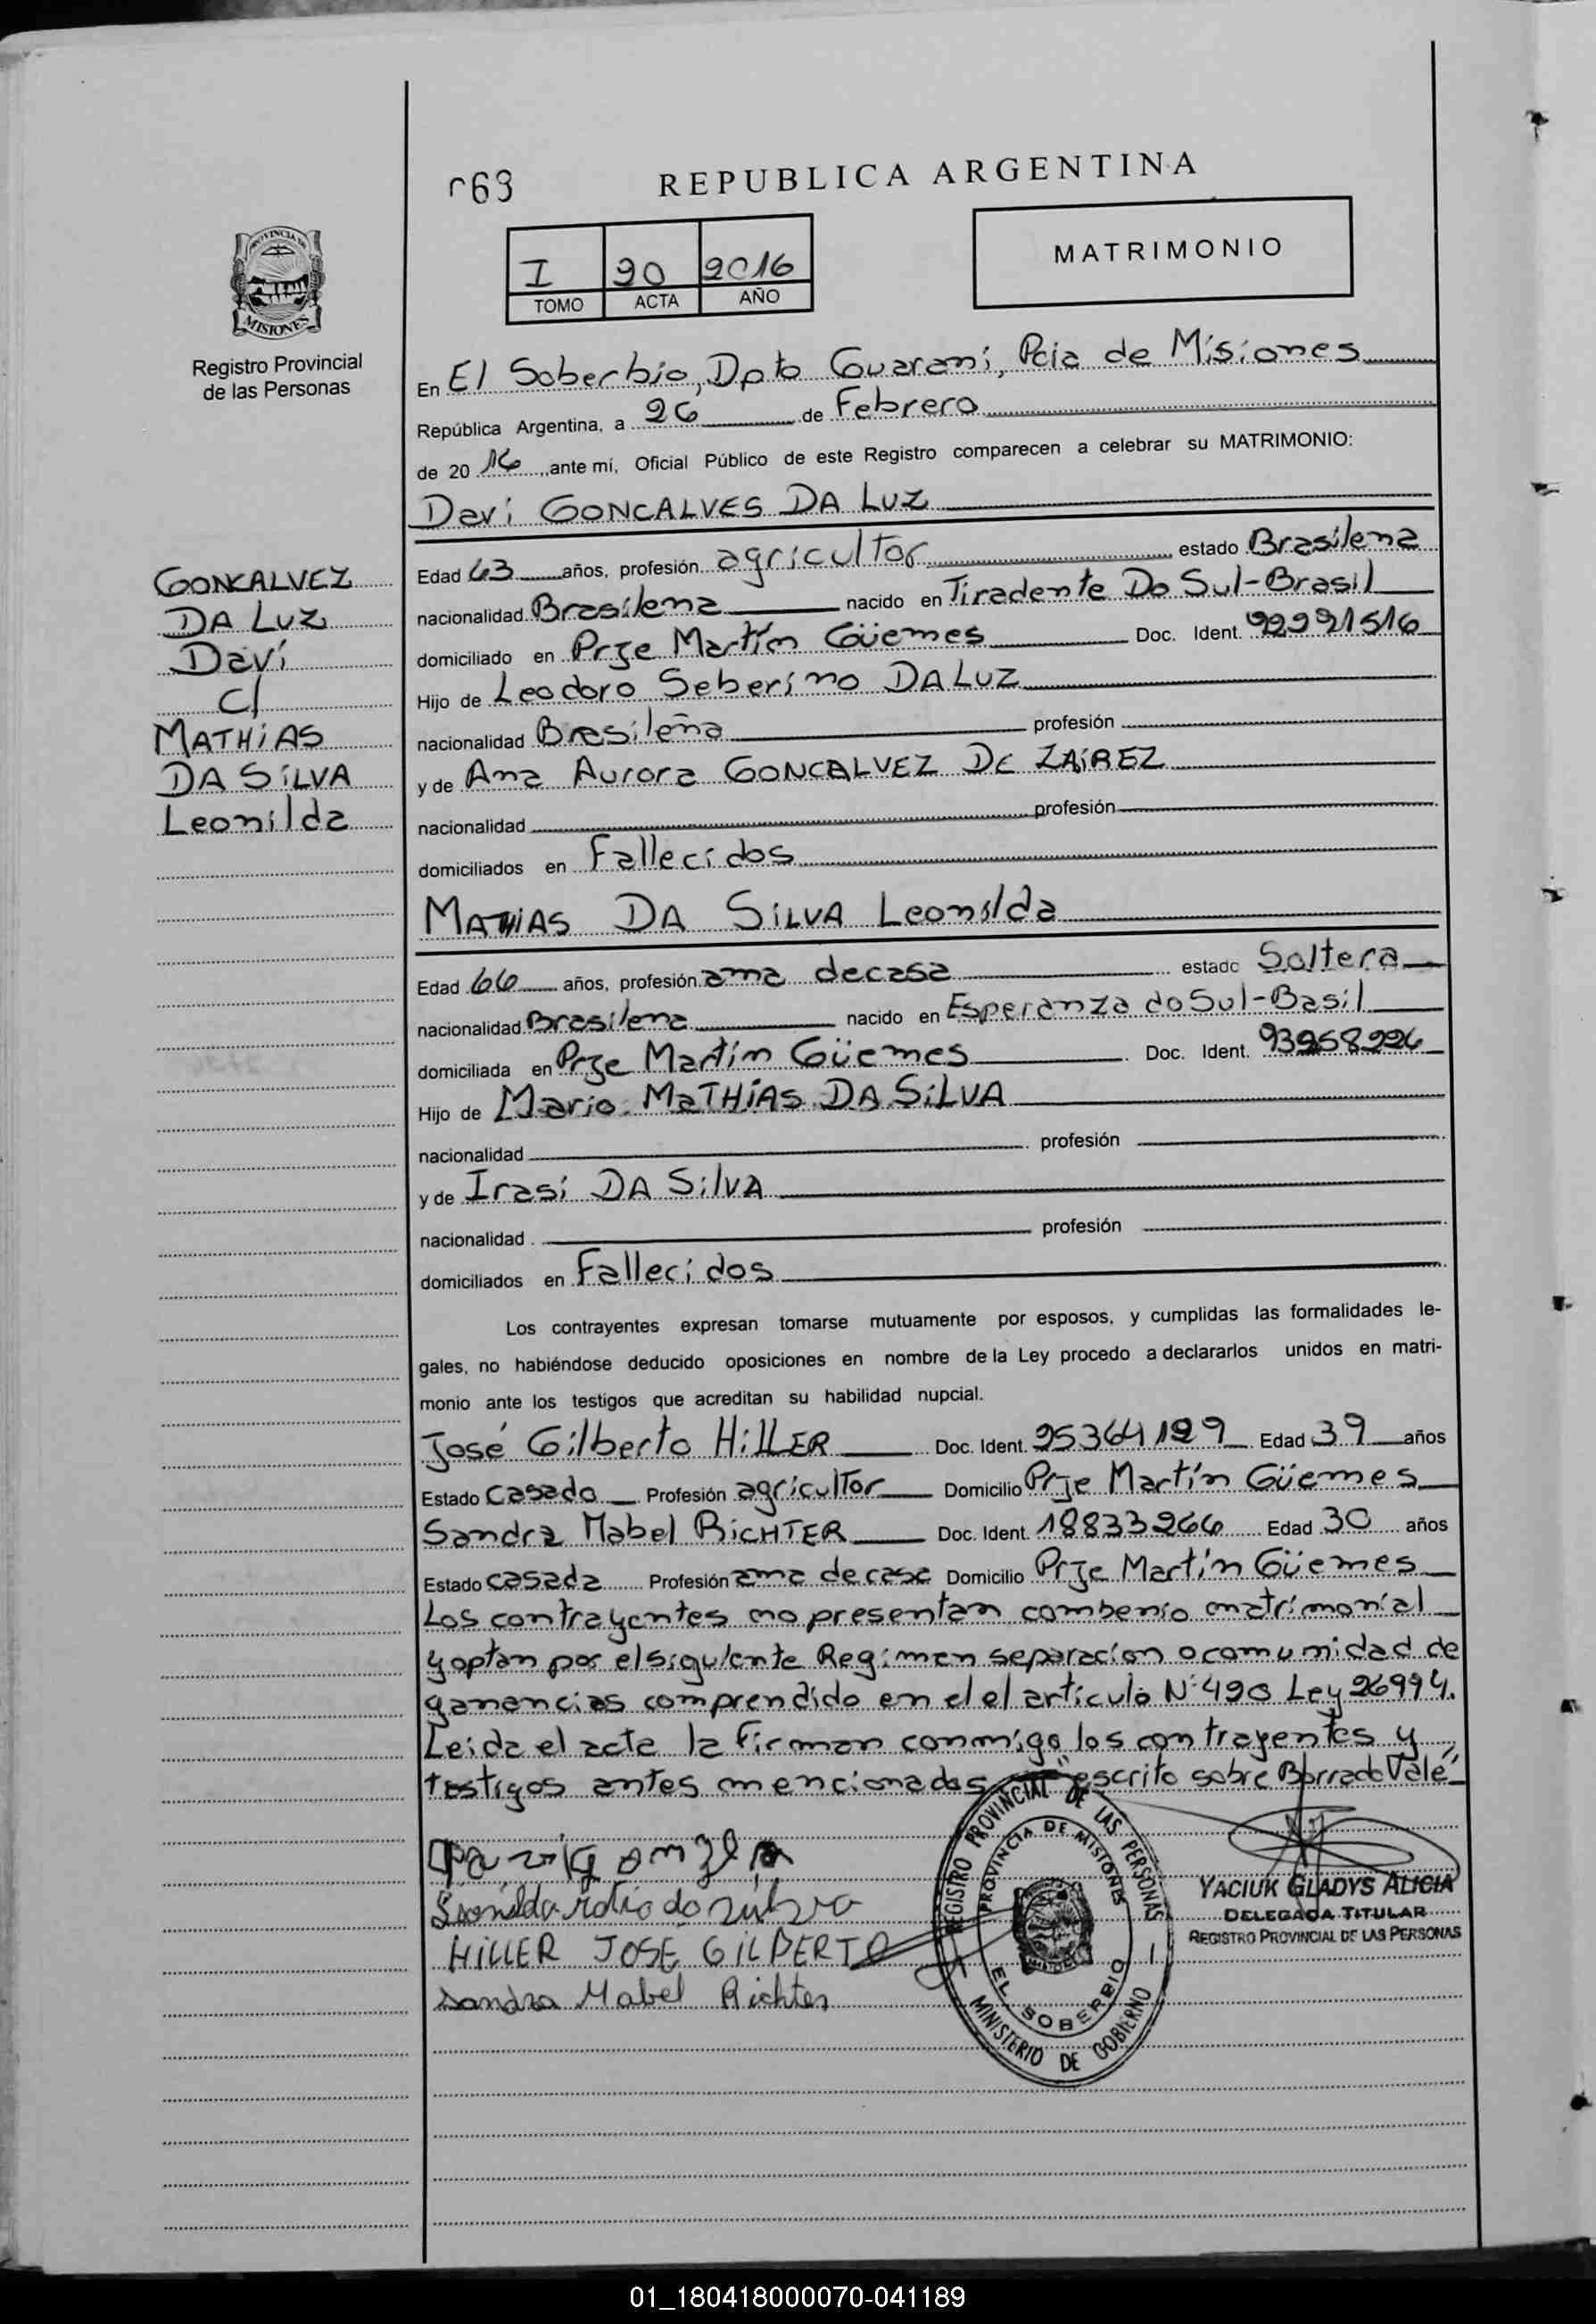 069
REPUBLICA ARGENTINA
I 20 2016
TOMO ACTA AÑO
MATRIMONIO
PROVINCIA DE
MISIONES
Registro Provincial
de las Personas
En El Soberbio, Dpto Guarani, Pcia de Misiones
República Argentina, a 26 de Febrero
de 2016, ante mí, Oficial Público de este Registro comparecen a celebrar su MATRIMONIO:
Davi GONCALVES DA LUZ
Edad 63 años, profesión agricultor estado Brasilena
nacionalidad Brasilena nacido en Tiradente Do Sul-Brasil
domiciliado en Prje Martín Güemes Doc. Ident. 92991516
Hijo de Leodoro Seberino DA LUZ
nacionalidad Brasileña profesión
y de Ana Aurora GONCALVEZ DE ZAIREZ
nacionalidad profesión
domiciliados en Fallecidos
GONCALVEZ
DA LUZ
Davi
C/
MATHIAS
DA SILVA
Leonilda
MATHIAS DA SILVA Leonilda
Edad 66 años, profesión ama de casa estado Soltera
nacionalidad Brasilena nacido en Esperanza do Sul-Basil
domiciliada en Prje Martín Güemes Doc. Ident. 93258226
Hijo de Mario MATHIAS DA SILVA
nacionalidad profesión
y de Irasi DA SILVA
nacionalidad profesión
domiciliados en Fallecidos
Los contrayentes expresan tomarse mutuamente por esposos, y cumplidas las formalidades le-
gales, no habiéndose deducido oposiciones en nombre de la Ley procedo a declararlos unidos en matri-
monio ante los testigos que acreditan su habilidad nupcial.
José Gilberto HILLER Doc. Ident. 95364129 Edad 39 años
Estado casado Profesión agricultor Domicilio Prje Martín Güemes
Sandra Mabel RICHTER Doc. Ident. 18833266 Edad 30 años
Estado casada Profesión ama de casa Domicilio Prje Martín Güemes
Los contrayentes no presentan combenio matrimonial
y optan por el siguiente Regimen separacion o comunidad de
ganancias comprendido en el el articulo N°420 Ley 26994.
Leida el acta la firman conmigo los contrayentes y
testigos antes mencionados escrito sobre Borrado Vale
Leonilda
HILLER JOSE GILBERTO
Sandra Mabel Richter
REGISTRO PROVINCIAL DE LAS PERSONAS
PROVINCIA DE MISIONES
EL SOBERBIO
MINISTERIO DE GOBIERNO
YACIUK GLADYS ALICIA
DELEGADA TITULAR
REGISTRO PROVINCIAL DE LAS PERSONAS
01_180418000070-041189